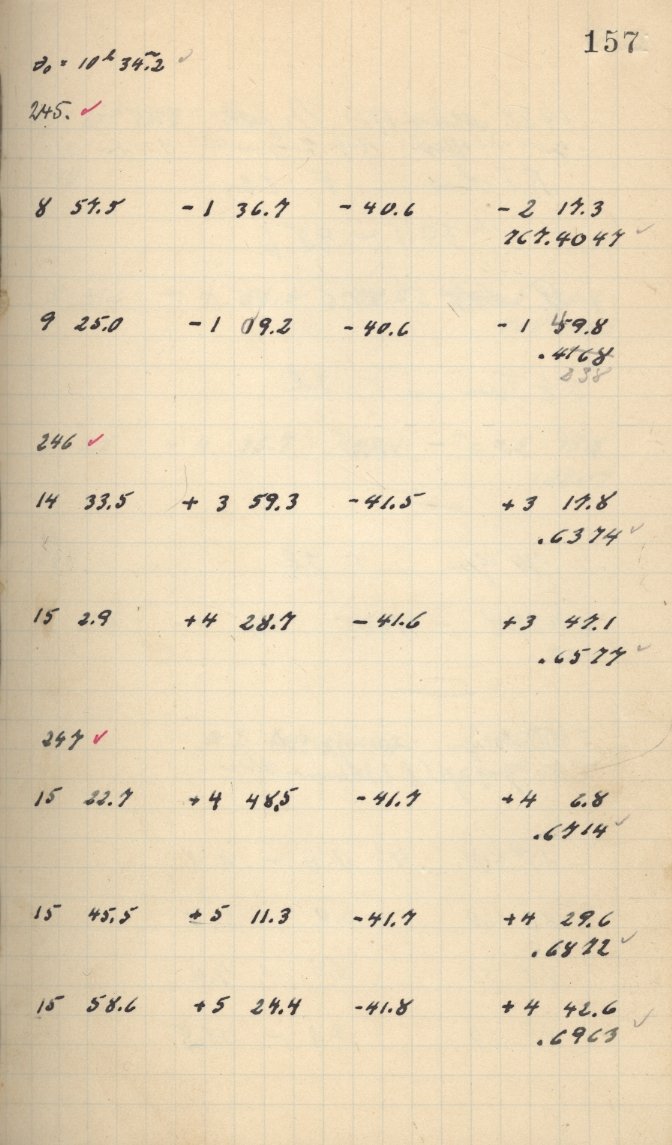 157
θ₀ = 10ʰ 34ᵐ.2 ✓
245. ✓
8 57.5 - 1 36.7 - 40.6 - 2 17.3
767.4047 ✓
9 25.0 - 1 09.2 - 40.6 - 1 49.8
.4168
238
246 ✓
14 33.5 + 3 59.3 - 41.5 + 3 17.8
.6374 ✓
15 2.9 + 4 28.7 - 41.6 + 3 47.1
.6577 ✓
247 ✓
15 22.7 + 4 48.5 - 41.7 + 4 6.8
.6714 ✓
15 45.5 + 5 11.3 - 41.7 + 4 29.6
.6872 ✓
15 58.6 + 5 24.4 - 41.8 + 4 42.6
.6963 ✓